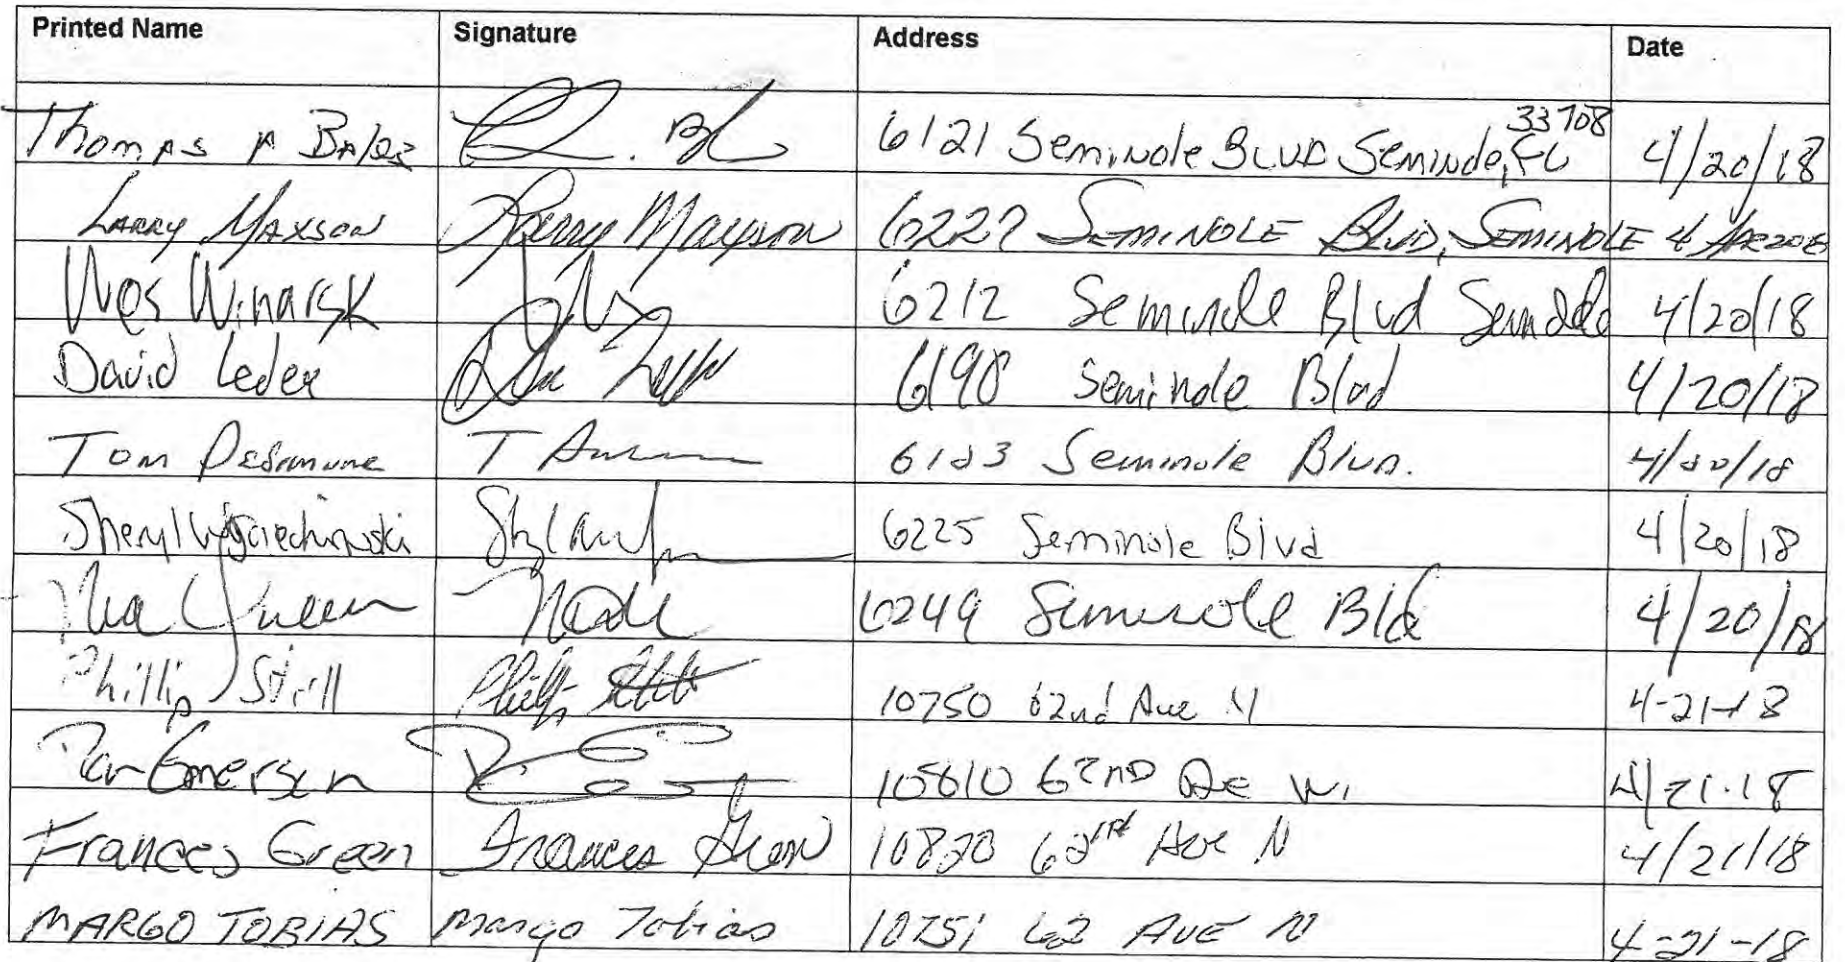 Printed Name Signature Address Date
33708
Thomas A Bales 6121 Seminole BLVD Seminole, FL 4/20/18
LARRY MAXSON Larry Maxson 6227 SEMINOLE BLVD, SEMINOLE
Wes Winarsk 6212 Seminole Blvd 4/20/18
David Leder 6198 Seminole Blvd 4/20/18
Tom 6123 Seminole Blvd. 4/20/18
Sheryl Wojciechowski 6225 Seminole Blvd 4/20/18
6249 Seminole Bld 4/20/18
Phillip Still 10750 62nd Ave N 4-21-18
Emerson 10610 62nd 4/21.18
Frances Green Frances Green 10820 Ave N 4/21/18
MARGO TOBIAS Margo Tobias 10751 62 AVE N 4-21-18